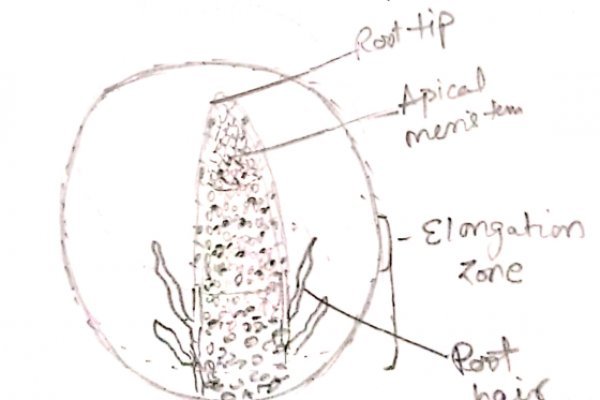 Root tip
Apical
meristem
Elongation
Zone
Root
hair